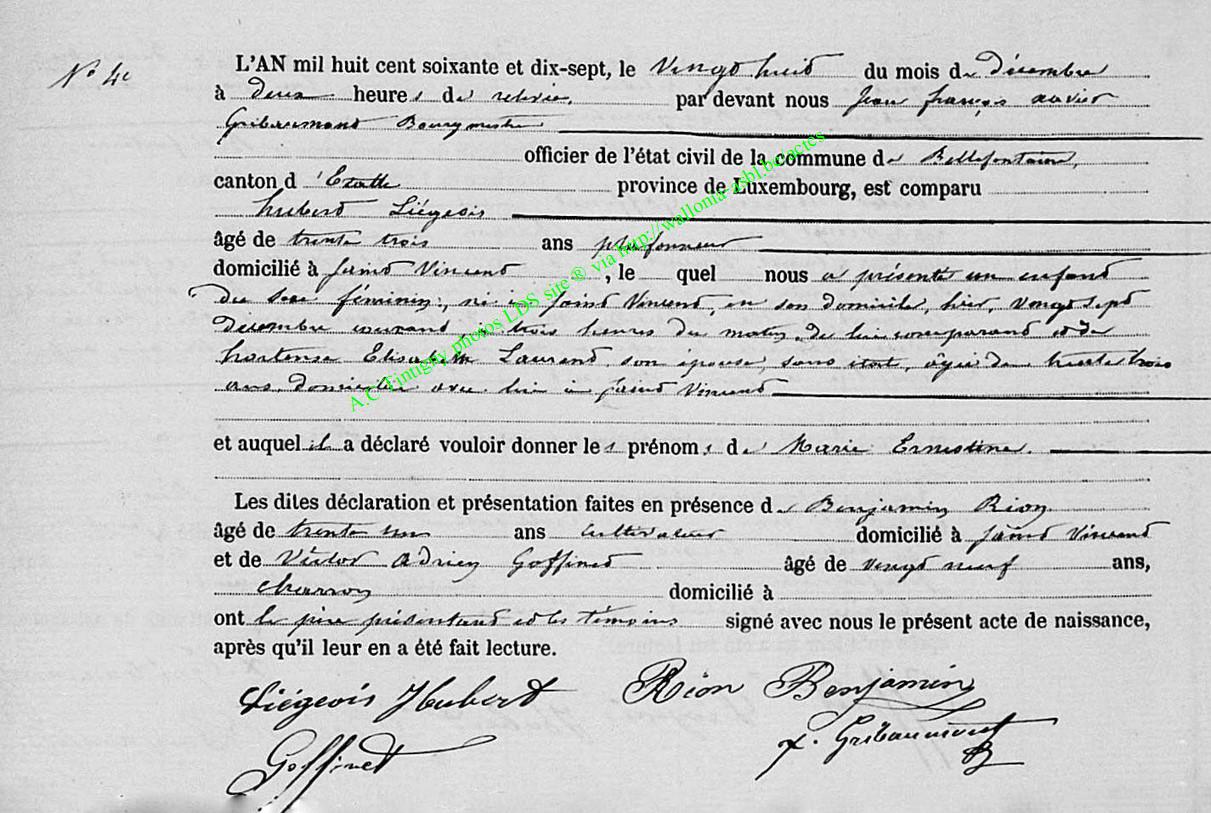 N° 4c
L'AN mil huit cent soixante et dix-sept, le Vingt huit du mois de décembre
à deux heures de relevée, par devant nous Jean françois xavier
Gribaumont Bourgmestre
officier de l'état civil de la commune de Bellefontaine,
canton d'Etalle province de Luxembourg, est comparu
hubert Liégeois
âgé de trente trois ans plafonneur
domicilié à Saint Vincent, le quel nous a présenté un enfant
du sexe féminin, né à Saint Vincent, en son domicile, hier, vingt sept
décembre courant, à trois heures du matin, de lui comparant et de
hortense Elisabeth Laurand son épouse, sans état, âgée de trente trois
ans, domiciliée avec lui à Saint Vincent
et auquel il a déclaré vouloir donner les prénoms de Marie Ernestine.
Les dites déclaration et présentation faites en présence de Benjamin Rion
âgé de trente un ans cultivateur domicilié à Saint Vincent
et de Victor Adrien Goffinet âgé de vingt neuf ans,
charron domicilié à
ont le père présentant et les témoins signé avec nous le présent acte de naissance,
après qu'il leur en a été fait lecture.
Liégeois Hubert Rion Benjamin
Goffinet x. Gribaumont
A.C. Tintigny photos LDS site ® via http://wallonia-asbl.be/actes